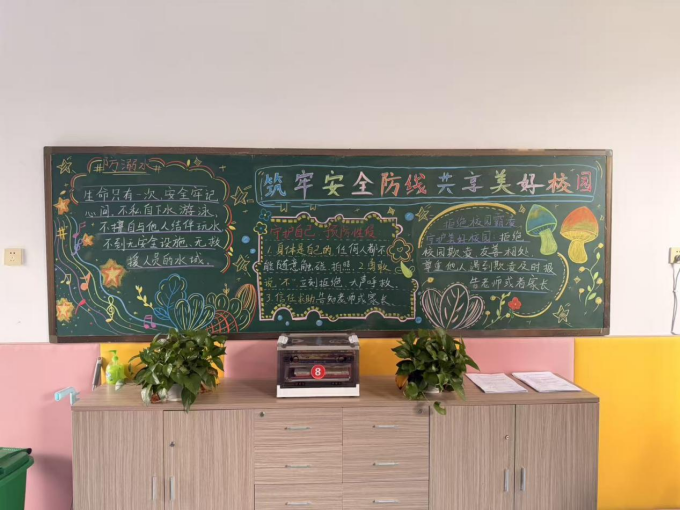 筑牢安全防线共享美好校园
#防溺水#
生命只有一次、安全牢记
心间、不私自下水游泳
不擅自与他人结伴玩水
不到无安全设施、无救
援人员的水域
守护自己 预防性侵
1.身体是自己的,任何人都不
能随意触碰、拍照、2.勇敢
说"不"立刻拒绝、大声呼救、
3.信任求助告知老师或家长
拒绝校园霸凌
守护美好校园、拒绝
校园欺凌 友善相处
尊重他人 遇到欺凌及时报
告老师或者家长
8